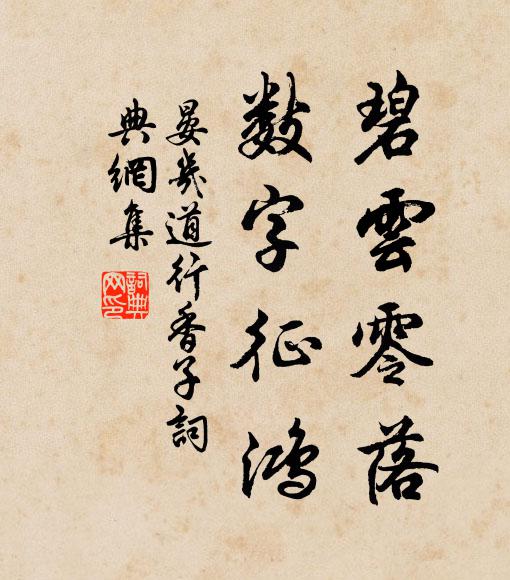 碧雲零落
數字征鴻
晏幾道行香子詞
典網集
詞典网印